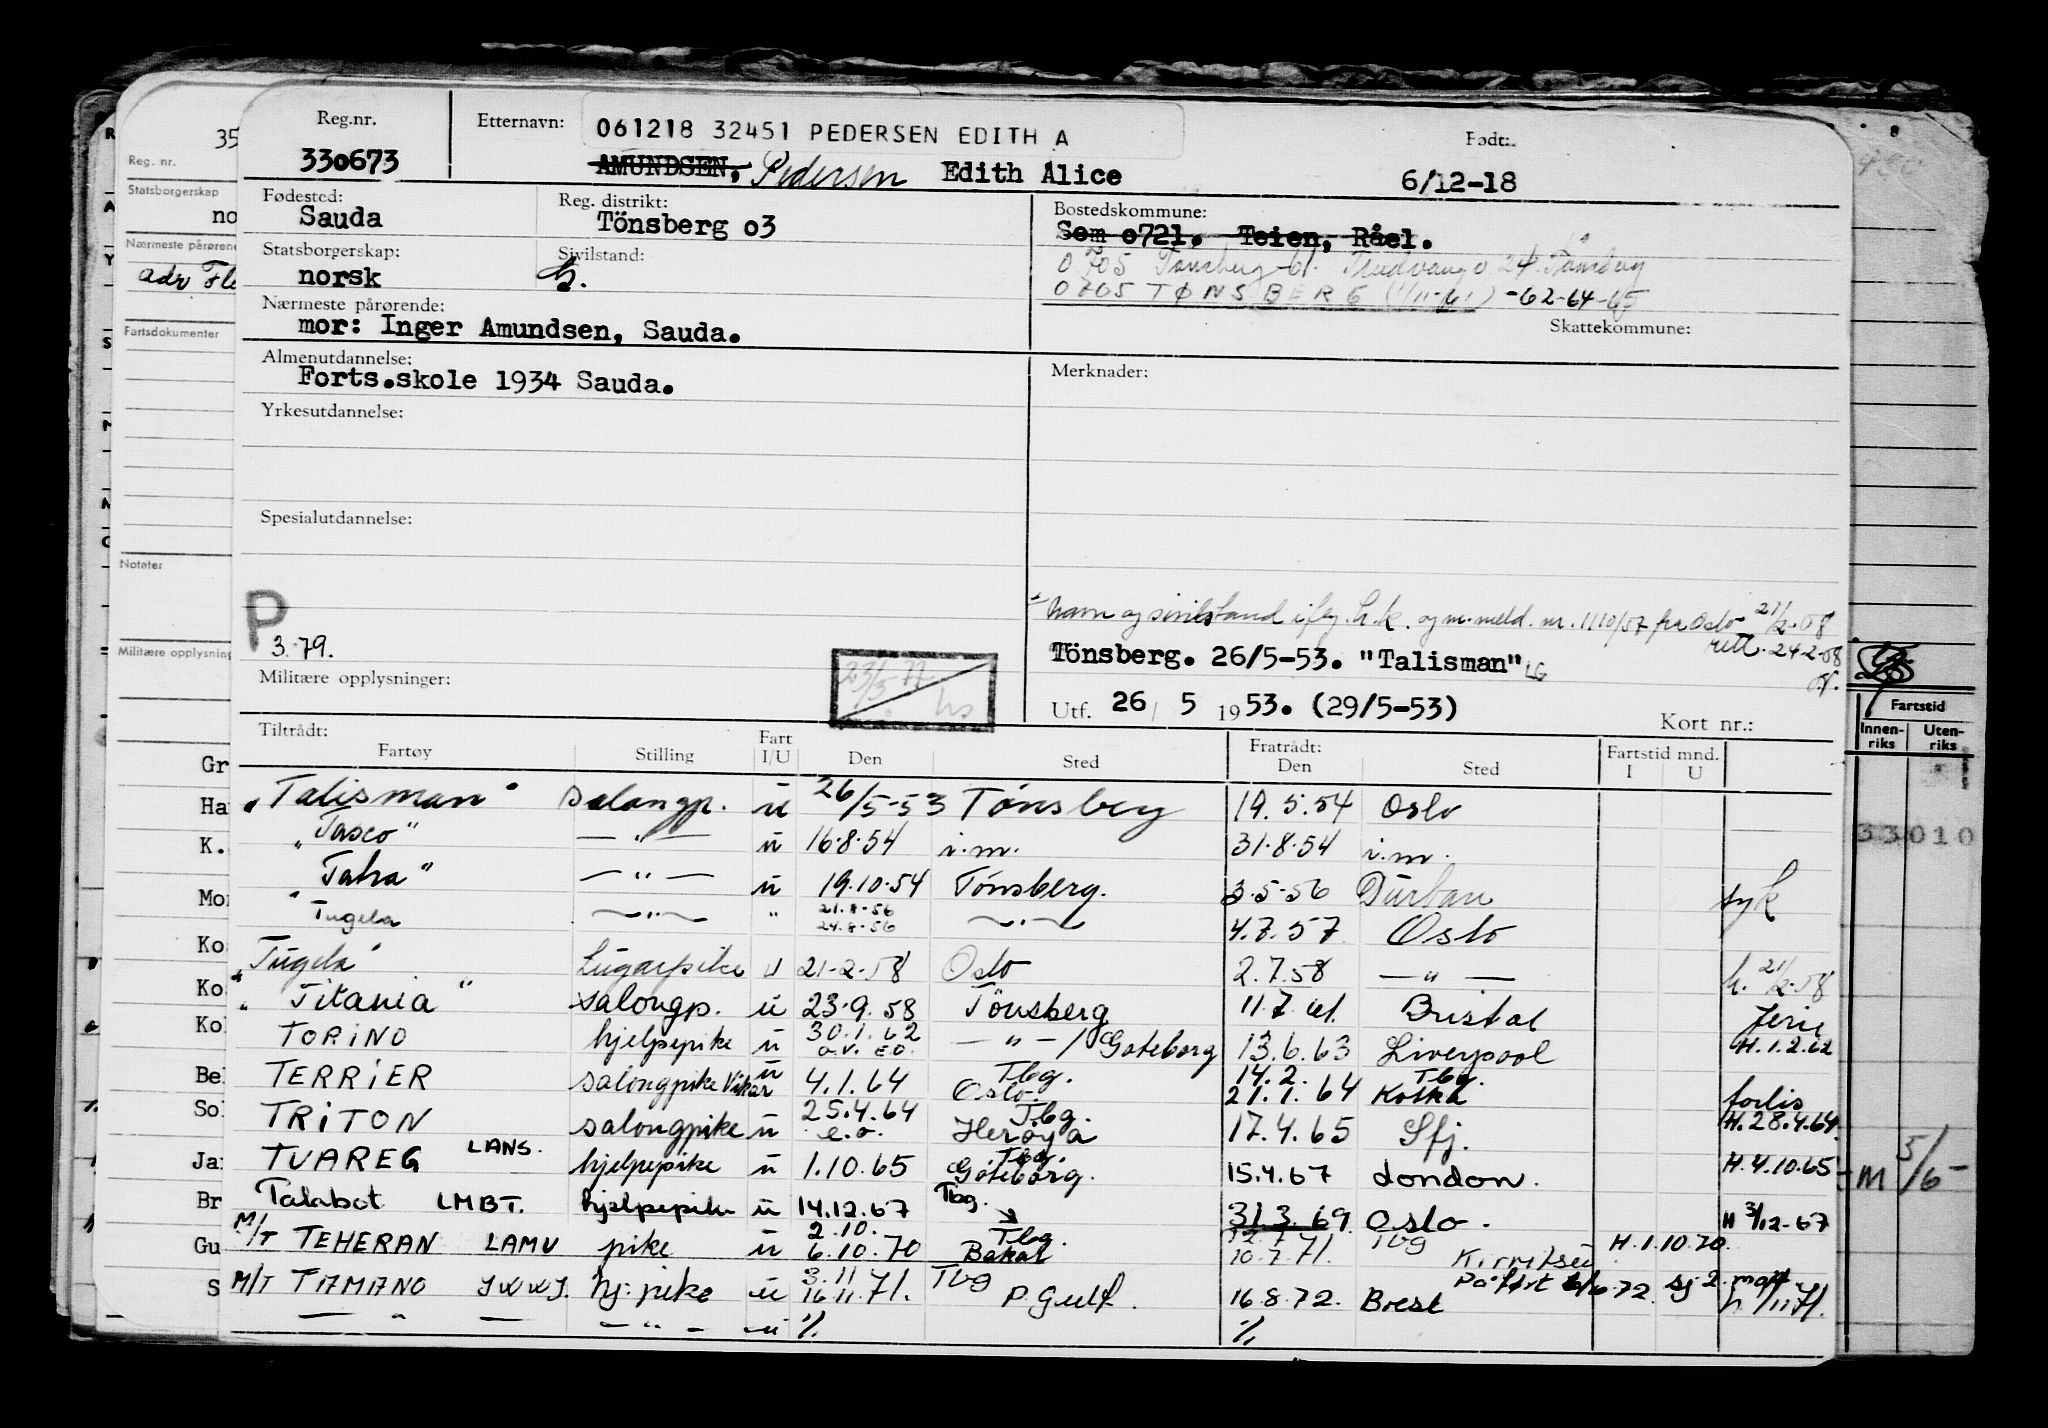 Reg.nr. Etternavn: 061218 32451 PEDERSEN EDITH A Født:
330673 AMUNDSEN, Pedersen Edith Alice 6/12-18
Fødested: Reg. distrikt: Bostedskommune:
Sauda Tönsberg o3 Sem o721. Teien, Råel.
Statsborgerskap: Sivilstand: 0705 Tønsberg 24 Tønsberg
norsk 0705 TØNSBERG (1/11-61) -62-64-65
Nærmeste pårørende: Skattekommune:
mor: Inger Amundsen, Sauda.
Almenutdannelse: Merknader:
Forts.skole 1934 Sauda.
Yrkesutdannelse:
Spesialutdannelse:
P
3.79.
Navn og sivilstand iflg. h.k. og m.meld. nr. 1110/57 fra Oslo 21/2-58
rett. 24-2-58
Tönsberg. 26/5-53. "Talisman" LG
Militære opplysninger: 23/3-77 hs
Utf. 26 / 5 1953. (29/5-53) Kort nr.:
Tiltrådt: Fart Fratrådt: Fartstid mnd.
Fartøy Stilling I/U Den Sted Den Sted I U
"Talisman" salongp. u 26/5-53 Tönsberg 19.5.54 Oslo
"Tasco" — " — u 16.8.54 i.m. 31.8.54 i.m.
"Tatra" — " — u 19.10.54 Tönsberg. 3.5.56 Durban syk
Tugela — " — " 21.8-56 24.8-56 — " — 4.7.57 Oslo
"Tugela" Lugarpike u 21-2-58 Oslo 2.7.58 — " — h. 21/2-58
"Titania" salongp. u 23.9.58 Tönsberg 11.7.61. Bristol ferie
TORINO hjelpepike u 30.1.62 a.v. E.O. — " — / Gøteborg 13.6.63 Liverpool H.1.2.62
TERRIER salongpike Vikar u 4.1.64 Tbg. Oslo. 14.2. 21.1.64 Tbg. Kotka forlis
TRITON salongpike u 25.4.64 e.o. Tbg. Herøya 17.4.65 Sfj. H.28.4.64.
TUAREG LANS. hjelpepike u 1.10.65 Tbg. Göteborg. 15.4.67 London. H.4.10.65
Talabot LMBT. hjelpepike u 14.12.67 Tbg. 31.3.69 Oslo. H 3/12-67
M/T TEHERAN LAMV pike u 2.10. 6.10.70 Tbg. Bakar 12.7. 10.7.71. Tbg H.1.10.70.
M/T TAMANO JWWJ. hj: pike u 3.11 16.11.71. Tbg P. Gulf. 16.8.72. Brest
— " — — " — u % %
35
Reg. nr.
Statsborgerskap
no
Nærmeste pårørende
adr Fle
Fartsdokumenter
Notater
Militære opplysning
Gr
Ha
K.
Mo
Ko
Ko
Kol
Be
So
Ja
Br
Gu
S
Fartstid
Innen-riks Uten-riks
33010
M 5/65